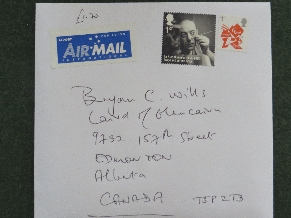 £1.20
AIR MAIL
INTERNATIONAL
1st
Bryan C. Wills
Laird of Glencairn
9732 157th Street
EDMONTON
Alberta
CANADA T5P 2T3